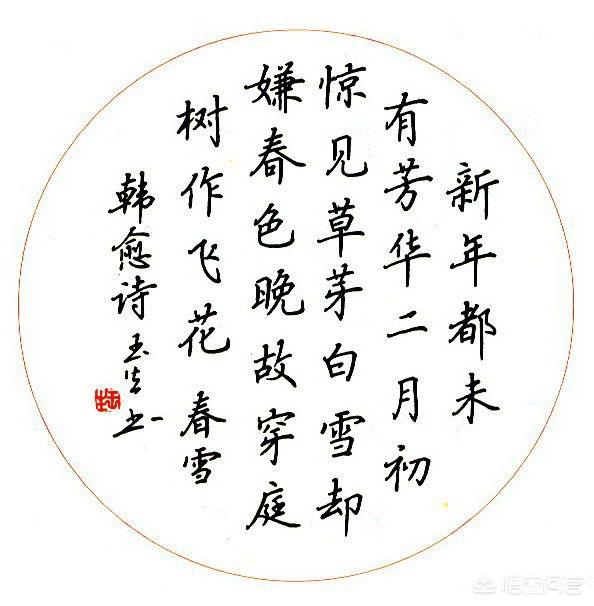 新年都未
有芳华二月初
惊见草芽白雪却
嫌春色晚故穿庭
树作飞花 春雪
韩愈诗 玉生书
悟空问答